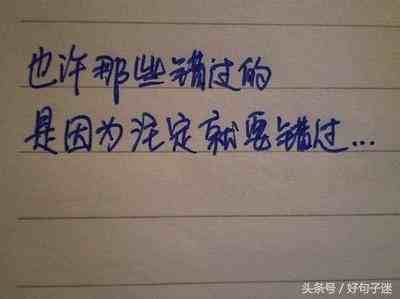 也许那些错过的
是因为注定就要错过...
头条号/好句子迷